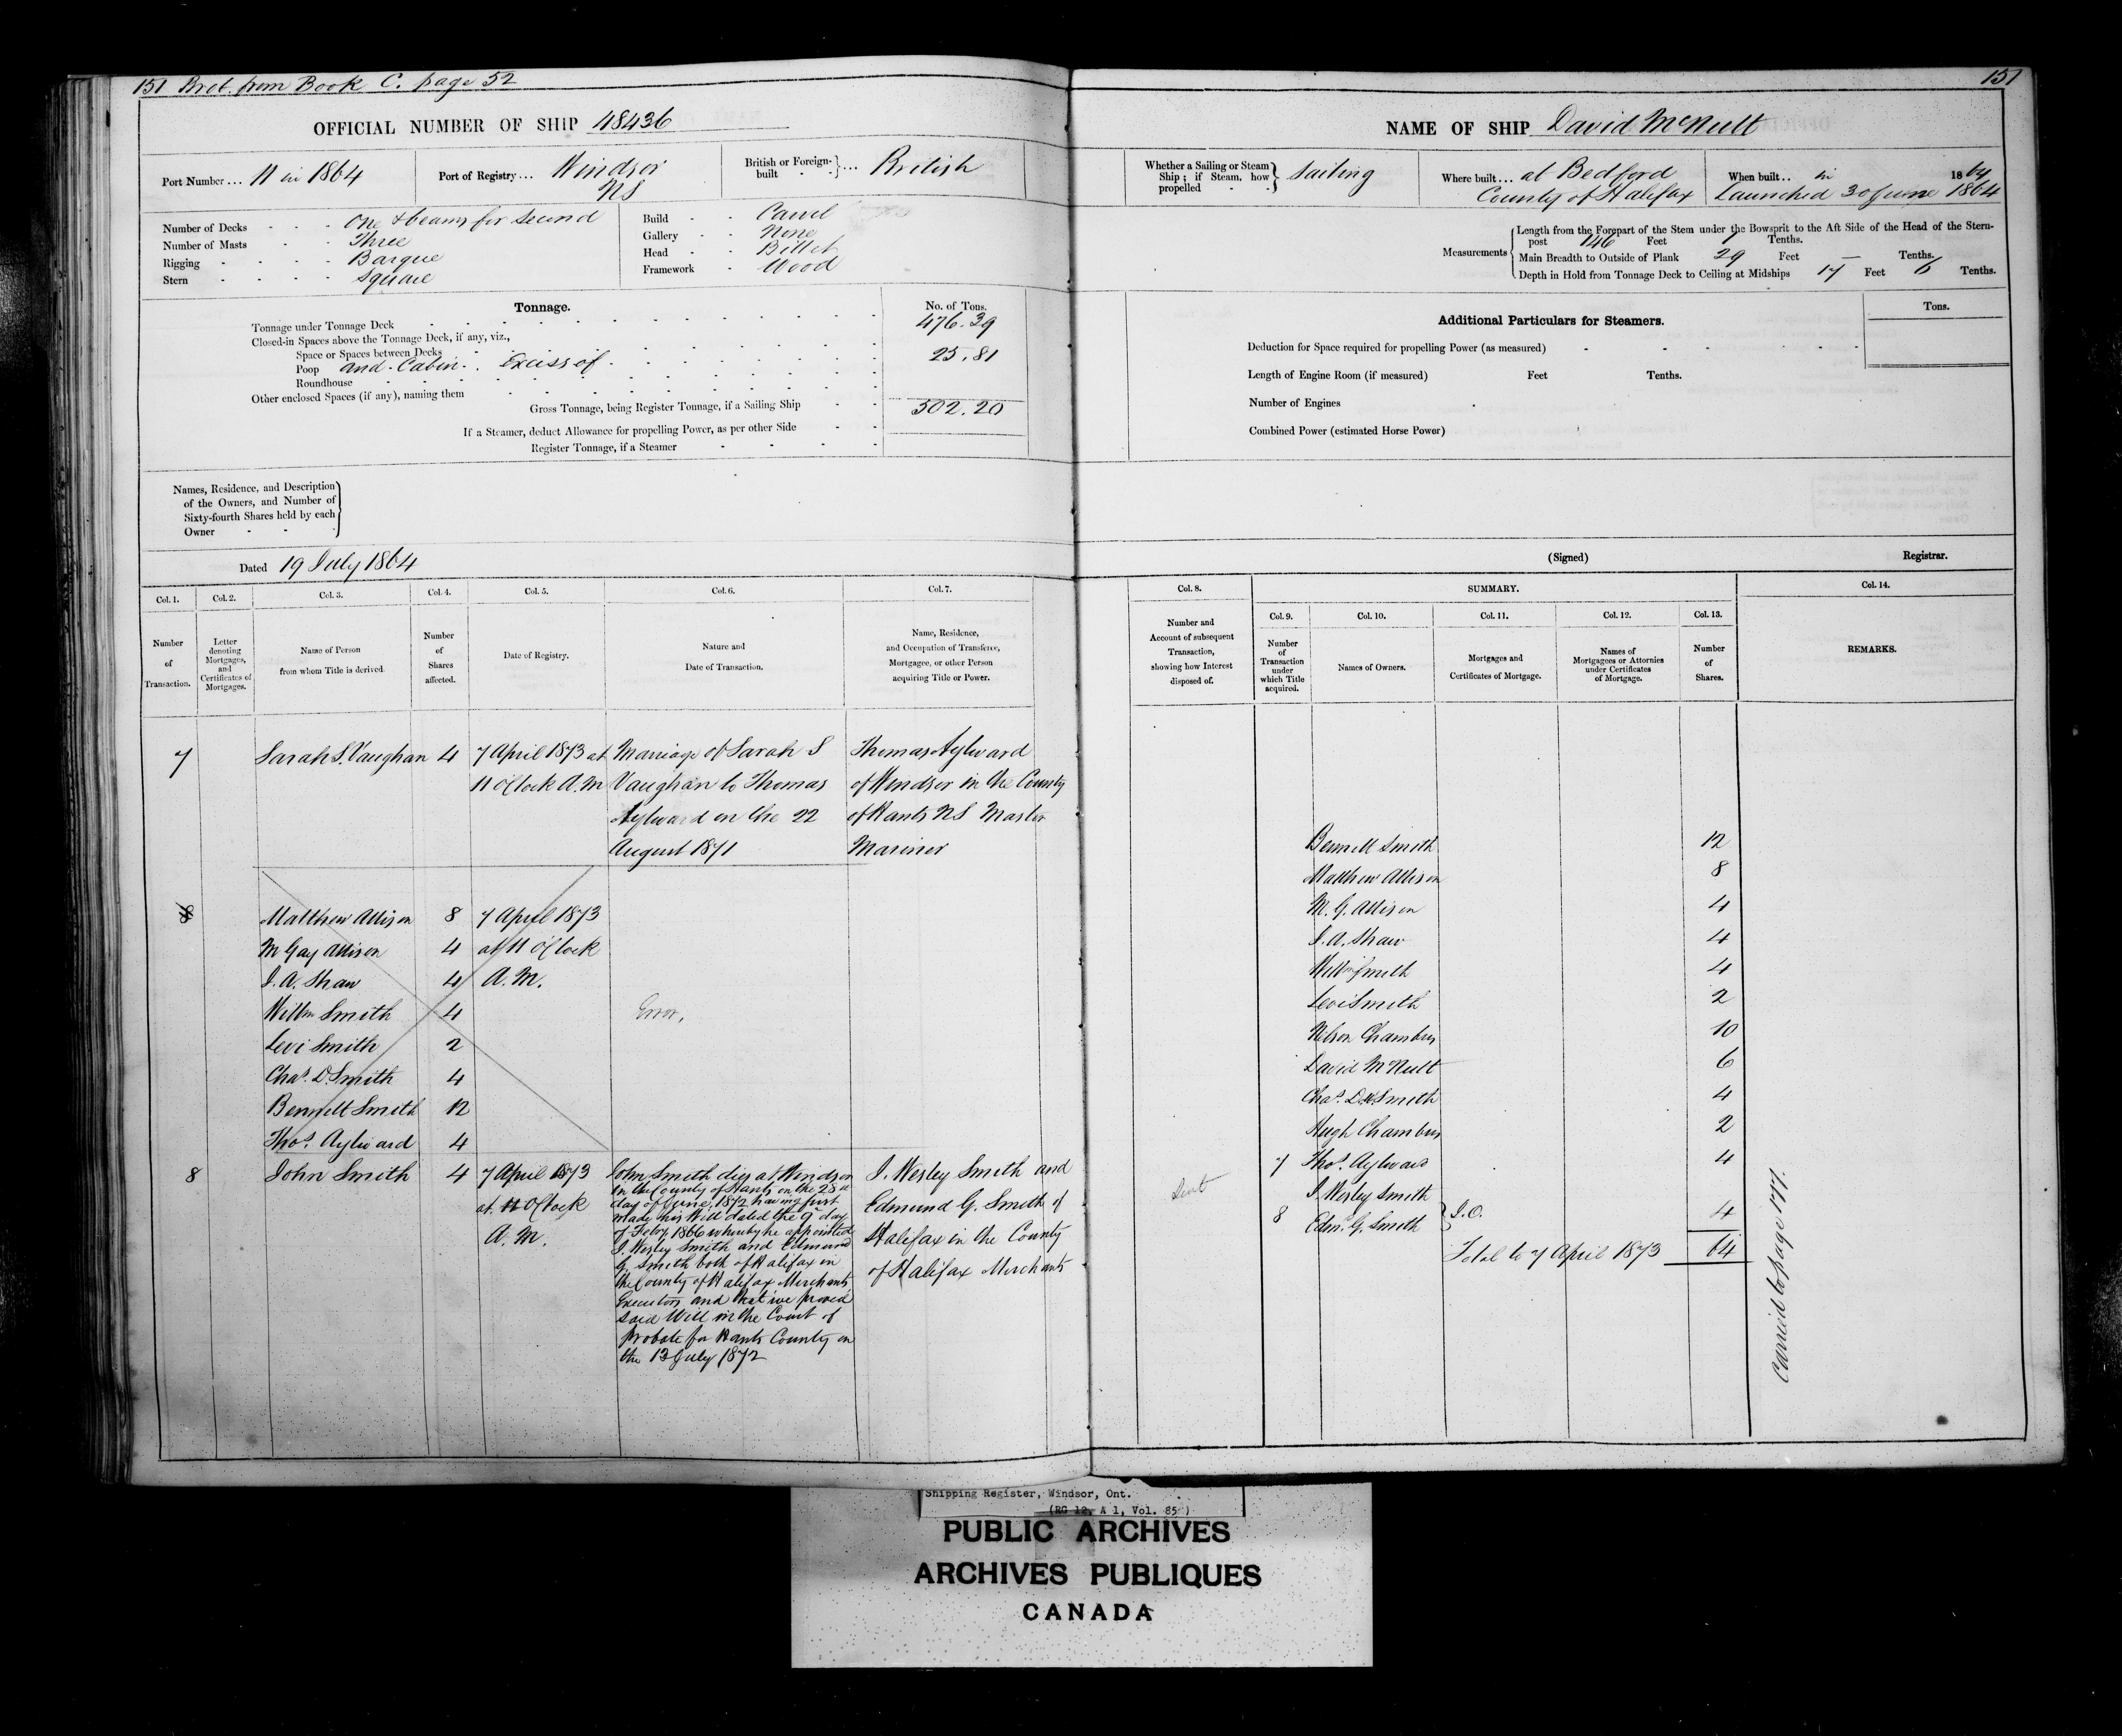 151 Brot. from Book C. page 52
OFFICIAL NUMBER OF SHIP 48436
Port Number ... 11 in 1864
Port of Registry ... Windsor NS
British or Foreign-built ... British
Number of Decks - - - One & beams for second
Number of Masts - - Three
Rigging - - - - Barque
Stern - - - - Square
Build - - Carvel
Gallery - - None
Head - - Billet
Framework - Wood
Tonnage.
No. of Tons.
Tonnage under Tonnage Deck 476.39
Closed-in Spaces above the Tonnage Deck, if any, viz.,
Space or Spaces between Decks
Poop and Cabin . Excess of 25.81
Roundhouse
Other enclosed Spaces (if any), naming them
Gross Tonnage, being Register Tonnage, if a Sailing Ship 502.20
If a Steamer, deduct Allowance for propelling Power, as per other Side
Register Tonnage, if a Steamer
Names, Residence, and Description
of the Owners, and Number of
Sixty-fourth Shares held by each
Owner
Dated 19 July 1864
Col. 1. Col. 2. Col. 3. Col. 4. Col. 5. Col. 6. Col. 7.
Number of Transaction.
Letter denoting Mortgages, and Certificates of Mortgages.
Name of Person from whom Title is derived.
Number of Shares affected.
Date of Registry.
Nature and Date of Transaction.
Name, Residence, and Occupation of Transferee, Mortgagee, or other Person acquiring Title or Power.
7 Sarah S. Vaughan 4 7 April 1873 at Marriage of Sarah S Thomas Aylward
11 O'Clock A.M Vaughan to Thomas of Windsor in the County
Aylward on the 22 of Hants NS Master
August 1871 Mariner
8 Matthew Allison 8 7 April 1873
M Gay Allison 4 at 11 O'Clock
J. A. Shaw 4 A.M.
Willm Smith 4 Error.
Levi Smith 2
Chas. D. Smith 4
Bennett Smith 12
Thos. Aylward 4
8 John Smith 4 7 April 1873
at 11 O'Clock
A.M.
John Smith died at Windsor
in the County of Hants on the 28th
day of June, 1872 having first
made his Will dated the 9th day
of Feby 1866 whereby he appointed
J. Wesley Smith and Edmund
G. Smith both of Halifax in
the County of Halifax Merchants
Executors and that we proved
said Will in the Court of
Probate for Hants County on
the 13 July 1872
J. Wesley Smith and
Edmund G. Smith of
Halifax in the County
of Halifax Merchants
151
NAME OF SHIP David McNutt
Whether a Sailing or Steam Ship ; if Steam, how propelled Sailing
Where built ... at Bedford
County of Halifax
When built .. in 1864
Launched 30 June 1864
Measurements
Length from the Forepart of the Stem under the Bowsprit to the Aft Side of the Head of the Stern-
post 146 Feet 1 Tenths.
Main Breadth to Outside of Plank 29 Feet — Tenths.
Depth in Hold from Tonnage Deck to Ceiling at Midships 17 Feet 6 Tenths.
Additional Particulars for Steamers.
Tons.
Deduction for Space required for propelling Power (as measured)
Length of Engine Room (if measured) Feet Tenths.
Number of Engines
Combined Power (estimated Horse Power)
(Signed) Registrar.
Col. 8. SUMMARY. Col. 14.
Col. 9. Col. 10. Col. 11. Col. 12. Col. 13.
Number and Account of subsequent Transaction, showing how Interest disposed of.
Number of Transaction under which Title acquired.
Names of Owners.
Mortgages and Certificates of Mortgage.
Names of Mortgagees or Attornies under Certificates of Mortgage.
Number of Shares.
REMARKS.
Bennett Smith 12
Matthew Allison 8
M. G. Allison 4
J. A. Shaw 4
Willm Smith 4
Levi Smith 2
Nelson Chambers 10
David McNutt 6
Chas. D. Smith 4
Hugh Chambers 2
7 Thos. Aylward 4
J. Wesley Smith
8 Edm. G. Smith } J.O. 4
Total to 7 April 1873 64
Carried to page 177.
Shipping Register, Windsor, Ont.
(RG 12, A 1, Vol. 85 )
PUBLIC ARCHIVES
ARCHIVES PUBLIQUES
CANADA